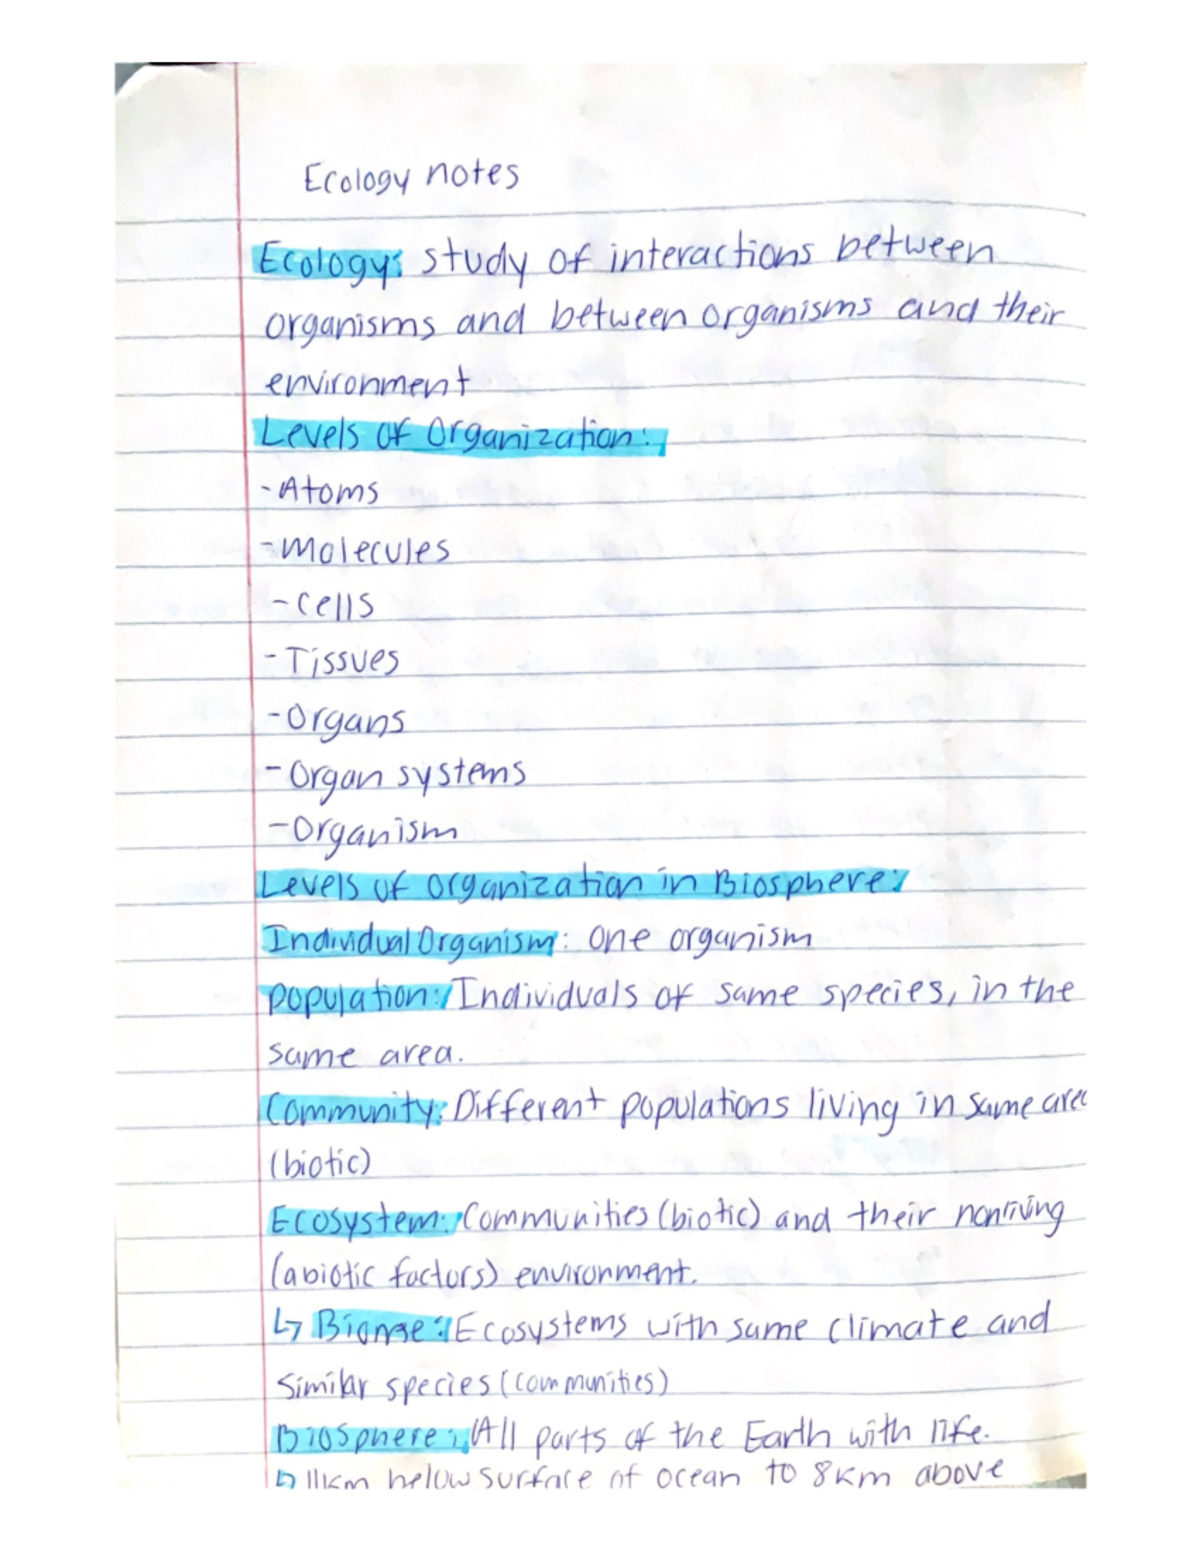 Ecology notes
Ecology: study of interactions between
organisms and between organisms and their
environment
Levels of Organization:
-Atoms
-Molecules
-Cells
-Tissues
-Organs
-Organ systems
-Organism
Levels of organization in Biosphere:
Individual Organism: One organism
population: Individuals of same species, in the
same area.
Community: Different populations living in same area
(biotic)
Ecosystem: Communities (biotic) and their nonliving
(abiotic factors) environment.
↳ Biome: Ecosystems with same climate and
similar species (communities)
Biosphere: All parts of the Earth with life.
↳ 11km below surface of ocean to 8km above